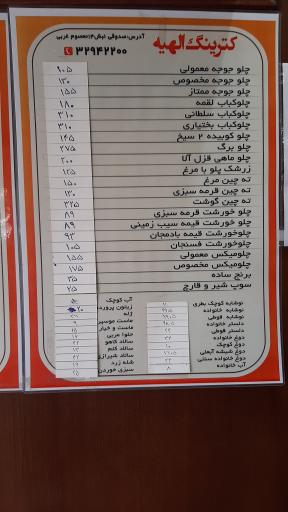 کترینگ الهیه
آدرس:صدوقی نبش ۱۴ معصوم غربی
۳۲۹۴۲۲۰۰
چلو جوجه معمولی ۹۰۵
چلو جوجه مخصوص ۱۳۰
چلو جوجه ممتاز ۱۵۵
چلوکباب لقمه ۱۸۰
چلوکباب سلطانی ۳۱۰
چلوکباب بختیاری ۳۱۰
چلو کوبیده ۲ سیخ ۱۴۵
چلو برگ ۲۷۵
چلو ماهی قزل آلا ۲۰۰
زرشک پلو با مرغ ۱۲۵
ته چین مرغ ۱۵۰
ته چین قرمه سبزی ۱۳۰
ته چین گوشت ۳۲۵
چلو خورشت قرمه سبزی ۸۹
چلو خورشت قیمه سیب زمینی ۸۹
چلوخورشت قیمه بادمجان ۹۳
چلوخورشت فسنجان ۱۰۵
چلومیکس معمولی ۱۵۵
چلومیکس مخصوص ۱۷۵
برنج ساده ۳۵
سوپ شیر و قارچ ۲۵
نوشابه کوچک بطری
نوشابه خانواده
نوشابه قوطی
دلستر خانواده
دلستر قوطی
دوغ خانواده
دوغ کوچک
دوغ شیشه آبعلی
دوغ خانواده سنتی
آب خانواده ۸
آب کوچک
زیتون پرورده ۲۰
ژله
ماست موسیر ۹
ماست و خیار
حلوا عربی
سالاد کاهو
سالاد کلم
سالاد شیرازی
شله زرد
سبزی خوردن